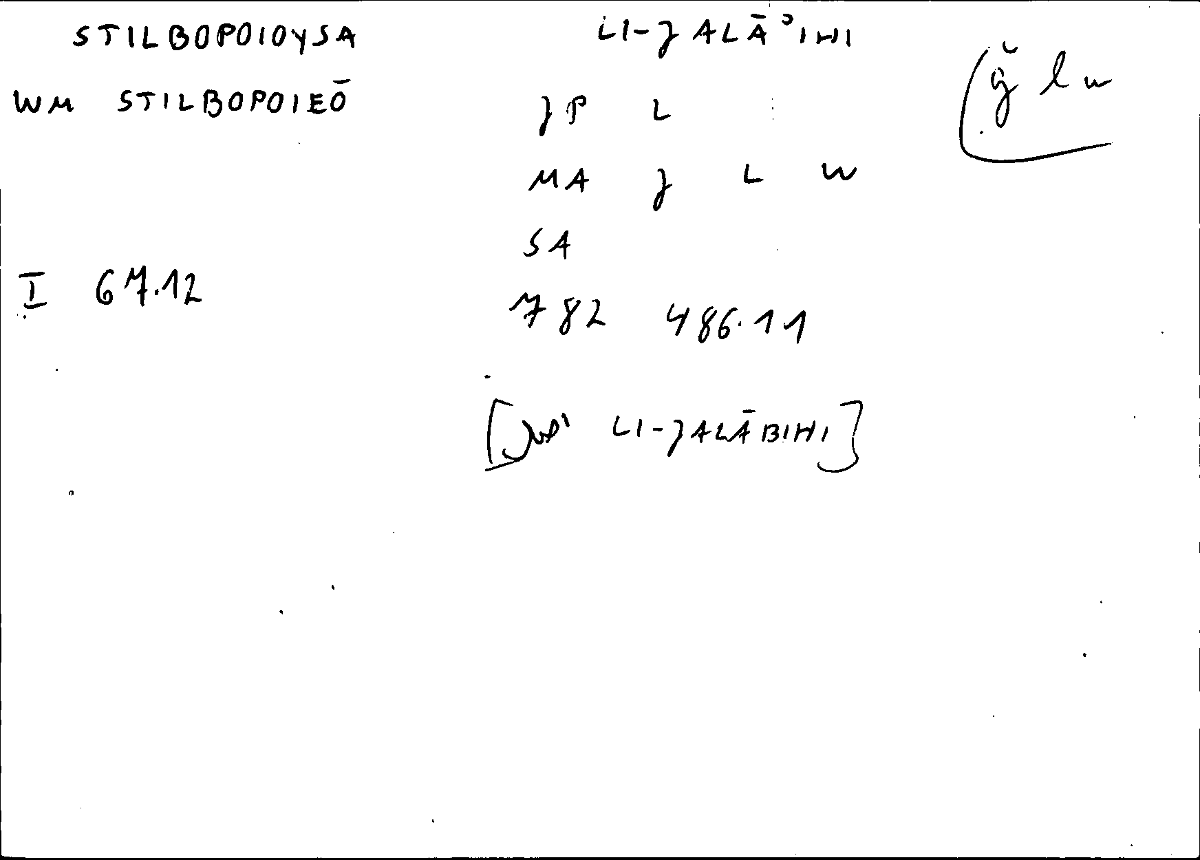 STILBOPOIOYSA LI-JALĀʾIHI
WM STILBOPOIEŌ JP L
(ǧ l w
MA J L W
SA
I 67.12 782 486.11
[ LI-JALĀBIHI]